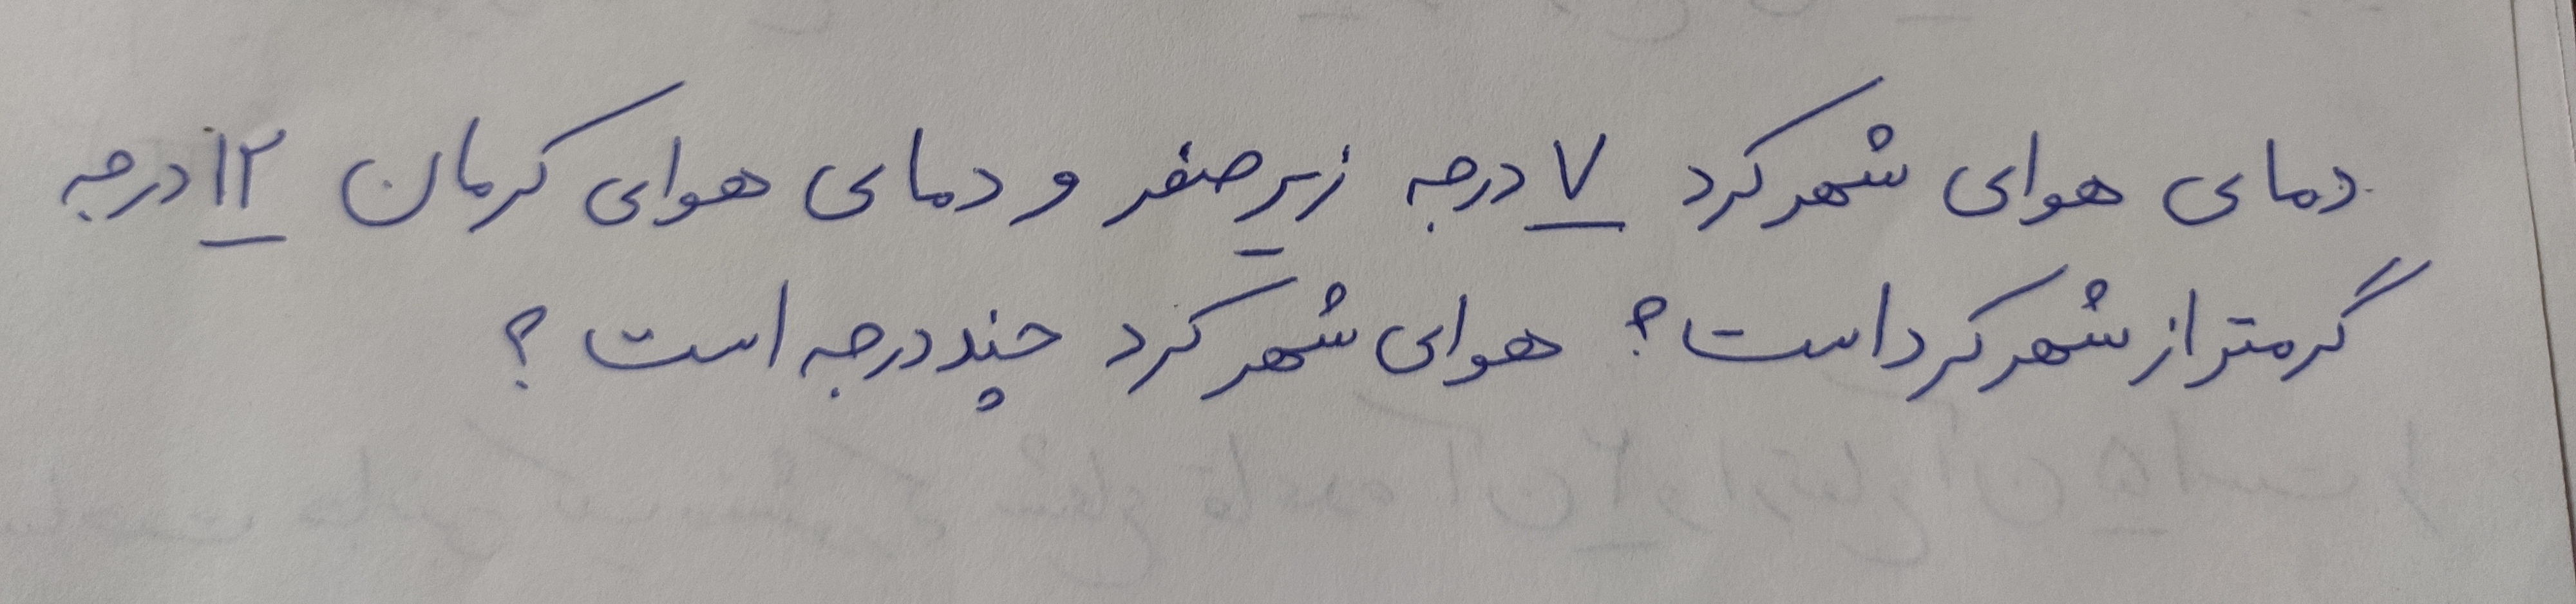 دمای هوای شهرکرد ۷ درجه زیر صفر و دمای هوای کرمان ۱۲ درجه
گرمتر از شهرکرد است؟ هوای شهرکرد چند درجه است؟